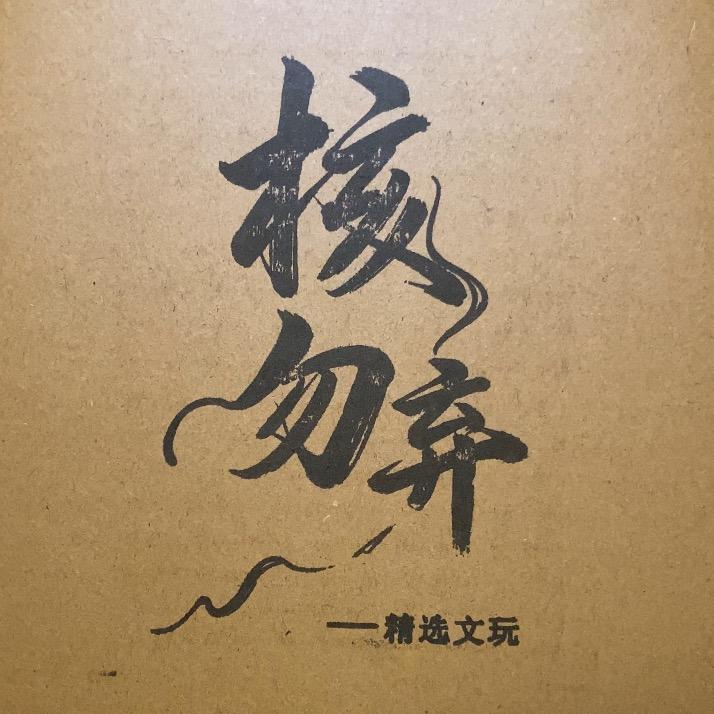 核
勿弃
—精选文玩